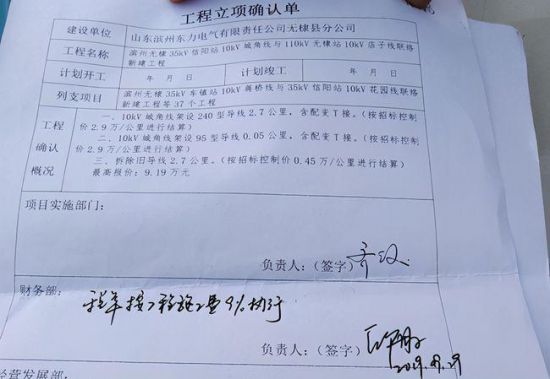 工程立项确认单
建设单位 山东滨州东力电气有限责任公司无棣县分公司
工程名称 滨州无棣 35kV 信阳站 10kV 城角线与 110kV 无棣站 10kV 店子线联络
新建工程
计划开工 年 月 日 计划竣工 年 月 日
列支项目 滨州无棣 35kV 车镇站 10kV 蒋桥线与 35kV 信阳站 10kV 花园线联络
新建工程等 37 个工程
工程确认概况
一、10kV 城角线架设 240 型导线 2.7 公里，含配变 T 接。（按招标控制
价 2.9 万/公里进行结算）
二、10kV 城角线架设 95 型导线 0.05 公里，含配变 T 接。（按招标控
制价 2.9 万/公里进行结算）
三、拆除旧导线 2.7 公里。（按招标控制价 0.45 万/公里进行结算）
最高报价：9.19 万元
项目实施部门：
负责人：（签字）
财务部：
税率按工程施工费9%执行
负责人：（签字）
经营发展部：